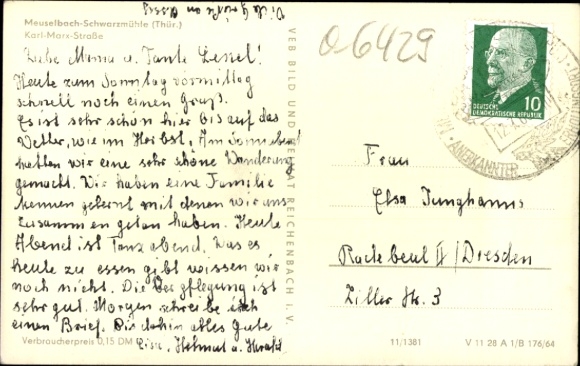 Meuselbach-Schwarzmühle (Thür.)
Karl-Marx-Straße
Viele Grüße an
Liebe Mama u. Tante Lessel!
Heute zum Sonntag vormittag
schnell noch einen Gruß.
Es ist sehr schön hier bis auf das
Wetter, wie im Herbst. Am Sonnabend
hatten wir eine sehr schöne Wanderung
gemacht. Wir haben eine Familie
kennen gelernt mit denen wir uns
zusammen getan haben. Heute
Abend ist Tanzabend. Was es
heute zu essen gibt wissen wir
noch nicht. Die Verpflegung ist
sehr gut. Morgen schreibe ich
einen Brief. Bis dahin alles Gute
Helmut u. Harald
Verbraucherpreis 0,15 DM
VEB BILD UND HEIMAT REICHENBACH i. V.
06429
DEUTSCHE
DEMOKRATISCHE REPUBLIK
10
ANERKANNTER
Frau
Elsa Junghanns
Radebeul II / Dresden
Ziller Str. 3
11/1381
V 11 28 A 1/B 176/64